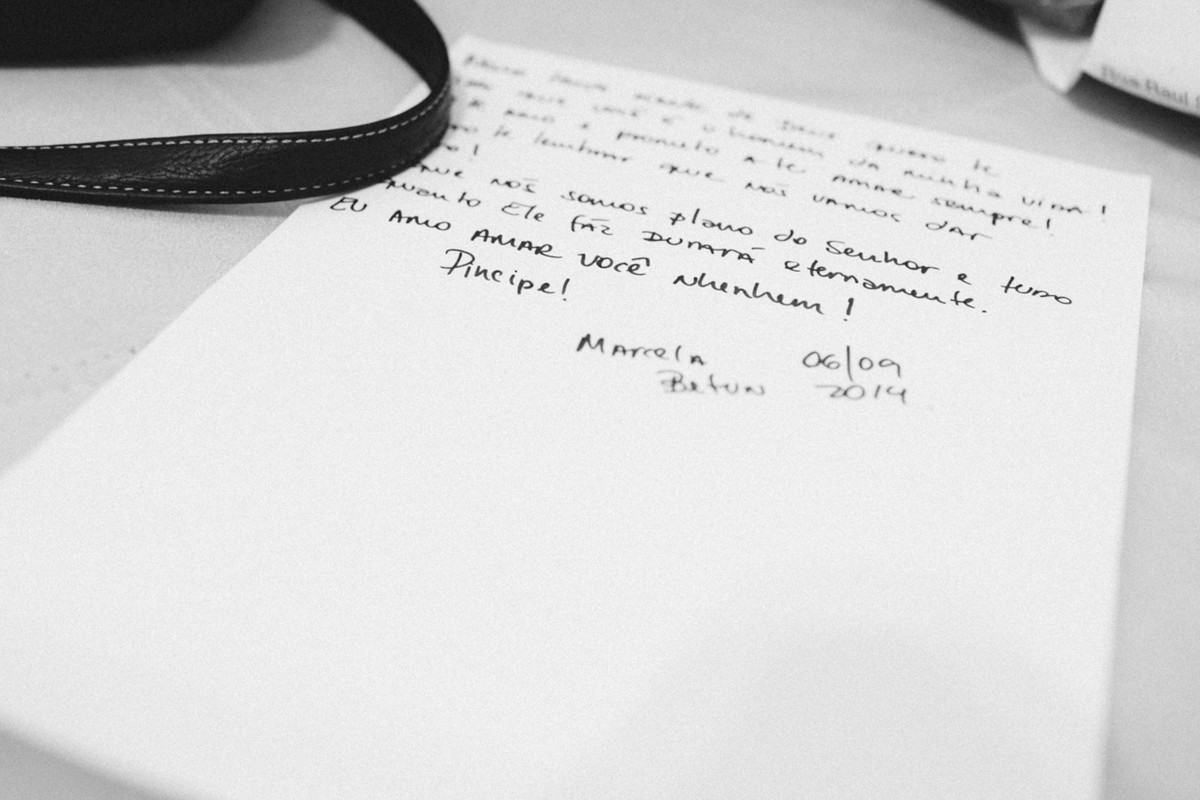 diante de Deus quero te
que você é o homem da minha vida!
amo e prometo a te amar sempre!
te lembrar que nós vamos dar
que nós somos plano do Senhor e tudo
quanto Ele fáz DURARÁ eternamente.
EU AMO AMAR você Nhenhem!
Píncipe!
Marcela 06/09
Betun 2014
Rua Raul